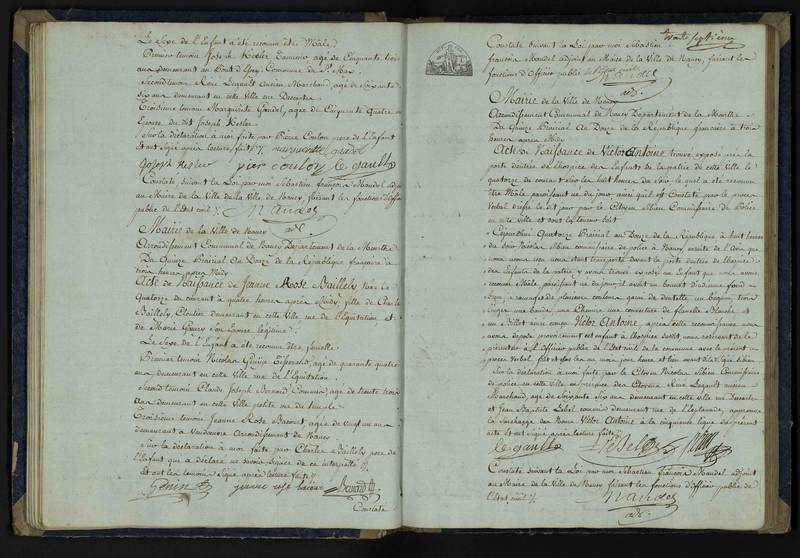 Le Sexe de l'Enfant a été reconnu être Male,
Premier temoin Joseph Kesler Tanneur, agé de Cinquante trois
ans demeurant au Pont d'Essey Commune de St Max.
Second temoin René Legault Ancien Marchand, agé de Soixante
six ans demeurant en cette Ville rue Descartes
Troisieme temoin Marguerite Gondel, agée de Cinquante Quatre ans
Epouse du dit Joseph Kesler.
Sur la déclaration à moi faite par Pierre Coulon pere de l'Enfant
Et ont Signé après lecture faite
Joseph Kesler pier coulon Legault
Constaté, Suivant la Loi par moi Sébastien François Mandel adjoint
au Maire de la Ville de Nancy, faisant les fonctions d'officier
public de l'Etat civil
Mandel
adt.
Mairie de la Ville de Nancy
Arrondissement Communal de Nancy Departement de la Meurthe
Du Quinze Prairial an Douze de la République française à
trois heures après Midy
Acte de Naissance de Jeanne Rose Bailly née le
Quatorze du courant à quatre heures après Midy, fille de Charles
Bailly, Cloutier demeurant en cette Ville rue de l'Equitation et
de Marie son Epouse légitime.
Le Sexe de l'Enfant a été reconnu être femelle.
Premier temoin Nicolas agé de quarante quatre
ans demeurant en cette Ville rue de l'Equitation.
Second temoin Claude Joseph Bernard Commis, agé de trente trois
ans demeurant en cette Ville petite rue
Troisieme temoin Jeanne Rose agée de vingt un ans
demeurant à Vandœuvre Arrondissement de Nancy
Sur la déclaration à moi faite par Charles Bailly pere de
l'Enfant qui a déclaré ne savoir signer de ce interpellé
Et ont les temoins Signé après lecture faite
jeanne rose Bernard
Constaté
trente Septième
Constaté Suivant la Loi par moi Sébastien
françois Mandel adjoint au Maire de la Ville de Nancy, faisant les
fonctions d'Officier public de l'Etat civil
Mandel
adt.
Mairie de la Ville de Nancy
Arrondissement Communal de Nancy Departement de la Meurthe
Du Quinze Prairial an Douze de la République française à trois
heures après Midy
Acte de Naissance de Victor Antoine trouvé exposé près la
porte d'entrée de l'hospice des Enfants de la patrie de cette Ville le
quatorze du courant à huit heures du soir le quel a été reconnu
être Male paraissant né du jour ainsi qu'il est Constaté par le procès
Verbal dressé le dit jour par le Citoyen Sibien Commissaire de Police
en cette ville et dont la teneur suit
Cejourd'hui Quatorze Prairial an Douze de la République à huit heures
du soir Nicolas Sibien commissaire de police à Nancy ensuite de l'avis que
nous avons reçu nous étant transporté devant la porte d'entrée de l'hospice
des Enfants de la patrie y avons trouvé exposé un Enfant que nous avons
reconnu Male paraissant né du jour, il avait un bonnet d'indienne fond
à ramages de plusieurs couleurs, garni de dentelle un beguin, trois
Langes une bande, une Chemise, une couverture de flanelle Blanche et
un Billet avec conçu Victor Antoine, après cette reconnaissance nous
avons déposé provisoirement cet enfant à l'hospice susdit, nous reservant de le
présenter à l'Officier public de l'Etat civil de la commune avec le present
procès Verbal, fait et clos les an mois jour, heure et lieu avant dits Signé Sibien
Sur la déclaration à moi faite par le Citoyen Nicolas Sibien Commissaire
de police en cette Ville en presence des Citoyens René Legault ancien
Marchand, agé de Soixante Six ans demeurant en cette ville rue Descartes
et Jean Baptiste Lebel commis demeurant rue de l'esplanade, approuvé
la Surcharge des Noms Victor Antoine à la cinquieme ligne du present
acte Et ont Signé après lecture faite
Legault Lebel
Constaté Suivant la Loi par moi Sébastien François Mandel adjoint
au Maire de la Ville de Nancy faisant les fonctions d'officier public de
l'Etat civil
Mandel
adt.